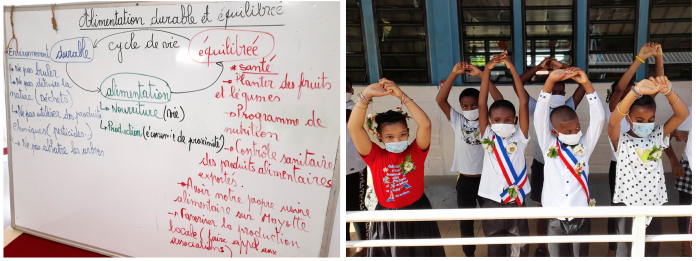 Alimentation durable et équilibrée
cycle de vie
Environnement durable
équilibrée
* santé
alimentation
↳ Nourriture (vie)
↳ Production (économie de proximité)
→ Ne pas brûler
→ Ne pas détruire la
nature (déchets)
→ Ne pas utiliser de produits
chimiques (pesticides)
→ Ne pas abattre les arbres
→ Planter des fruits
et légumes
→ Programme de
nutrition
→ Contrôle sanitaire
des produits alimentaires
exportés
→ Avoir notre propre usine
alimentaire sur Mayotte
→ Favoriser la production
locale (faire appel aux
associations)